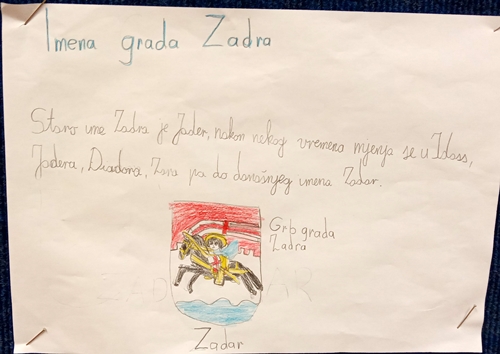 Imena grada Zadra
Staro ime Zadra je Jader, nakon nekog vremena mjenja se u Idass,
Jadera, Diadora, Zara pa do današnjeg imena Zadar.
Grb grada
Zadra
Zadar